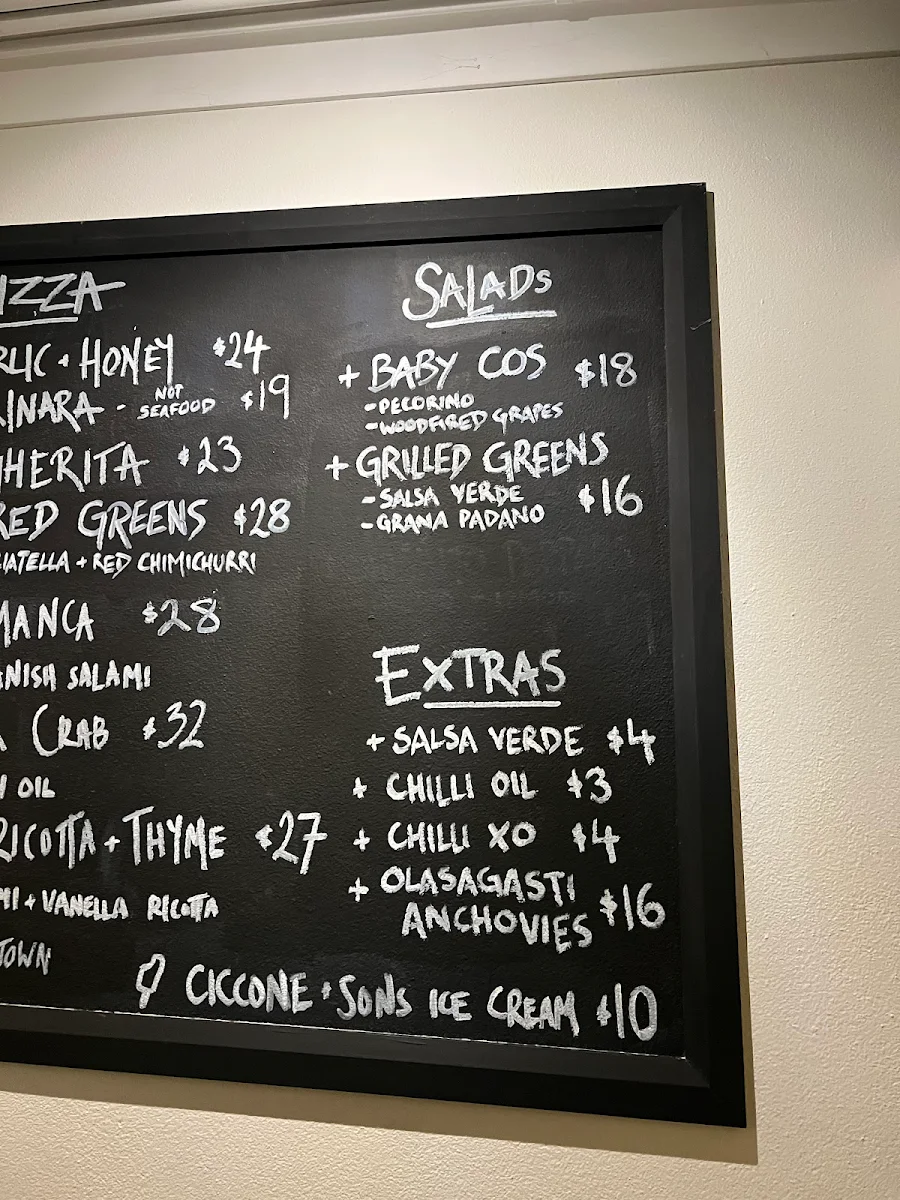 IZZA
RLIC + HONEY $24
INARA - NOT SEAFOOD $19
HERITA $23
RED GREENS $28
IATELLA + RED CHIMICHURRI
MANCA $28
NISH SALAMI
CRAB $32
OIL
RICOTTA + THYME $27
MI + VANELLA RICOTTA
TOWN
SALADS
+ BABY COS $18
- PECORINO
- WOODFIRED GRAPES
+ GRILLED GREENS
- SALSA VERDE $16
- GRANA PADANO
EXTRAS
+ SALSA VERDE $4
+ CHILLI OIL $3
+ CHILLI XO $4
+ OLASAGASTI
ANCHOVIES $16
CICCONE + SONS ICE CREAM $10